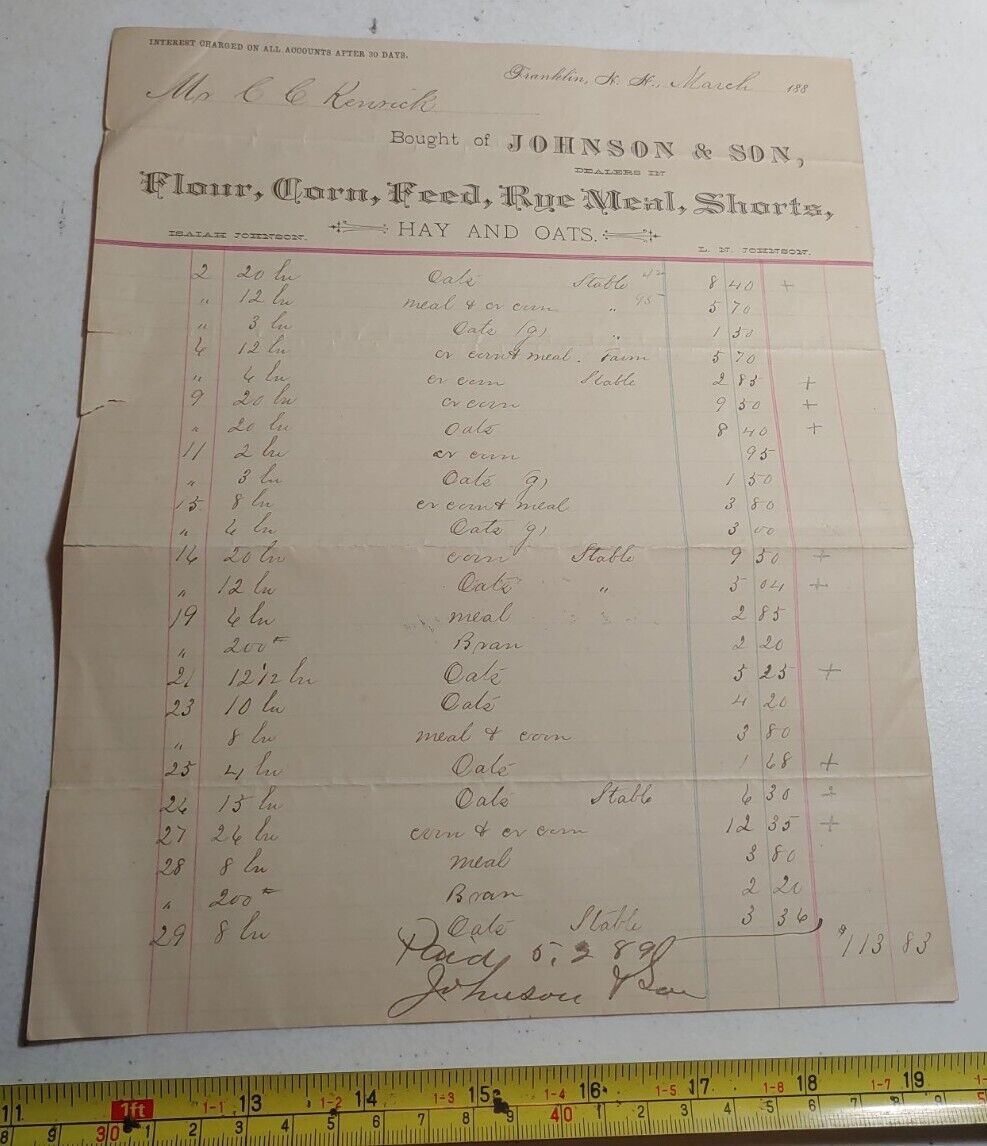 INTEREST CHARGED ON ALL ACCOUNTS AFTER 30 DAYS.
Franklin, N. H., March 188
Mr C C Kenrick
Bought of JOHNSON & SON,
DEALERS IN
Flour, Corn, Feed, Rye Meal, Shorts,
HAY AND OATS.
ISAIAH JOHNSON. L. N. JOHNSON.
2 20 bu Oats Stable 42 8 40 +
" 12 bu meal & cr corn " 95 5 70
" 3 bu Oats (g) " 1 50
6 12 bu cr corn & meal. Farm 5 70
" 6 bu cr corn Stable 2 85 +
9 20 bu cr corn 9 50 +
" 20 bu Oats 8 40 +
11 2 bu cr corn 95
" 3 bu Oats g) 1 50
15 8 bu cr corn & meal 3 80
" 6 bu Oats g) 3 00
16 20 bu corn Stable 9 50 +
" 12 bu Oats " 5 04 +
19 6 bu meal 2 85
" 200 # Bran 2 20
21 12 1/2 bu Oats 5 25 +
23 10 bu Oats 4 20
" 8 bu meal & corn 3 80
25 4 bu Oats 1 68 +
26 15 bu Oats Stable 6 30
27 26 bu corn & cr corn 12 35 +
28 8 bu meal 3 80
" 200 # Bran 2 20
29 8 bu Oats Stable 3 36
$113 83
Paid 5. 2 89
Johnson & Son
11 1ft 1-1 13 1-2 14 1-3 15 1-4 16 1-5 17 1-6 18 1-7 19
8 9 30 1 2 3 4 5 6 7 8 9 40 1 2 3 4 5 6 7 8 9